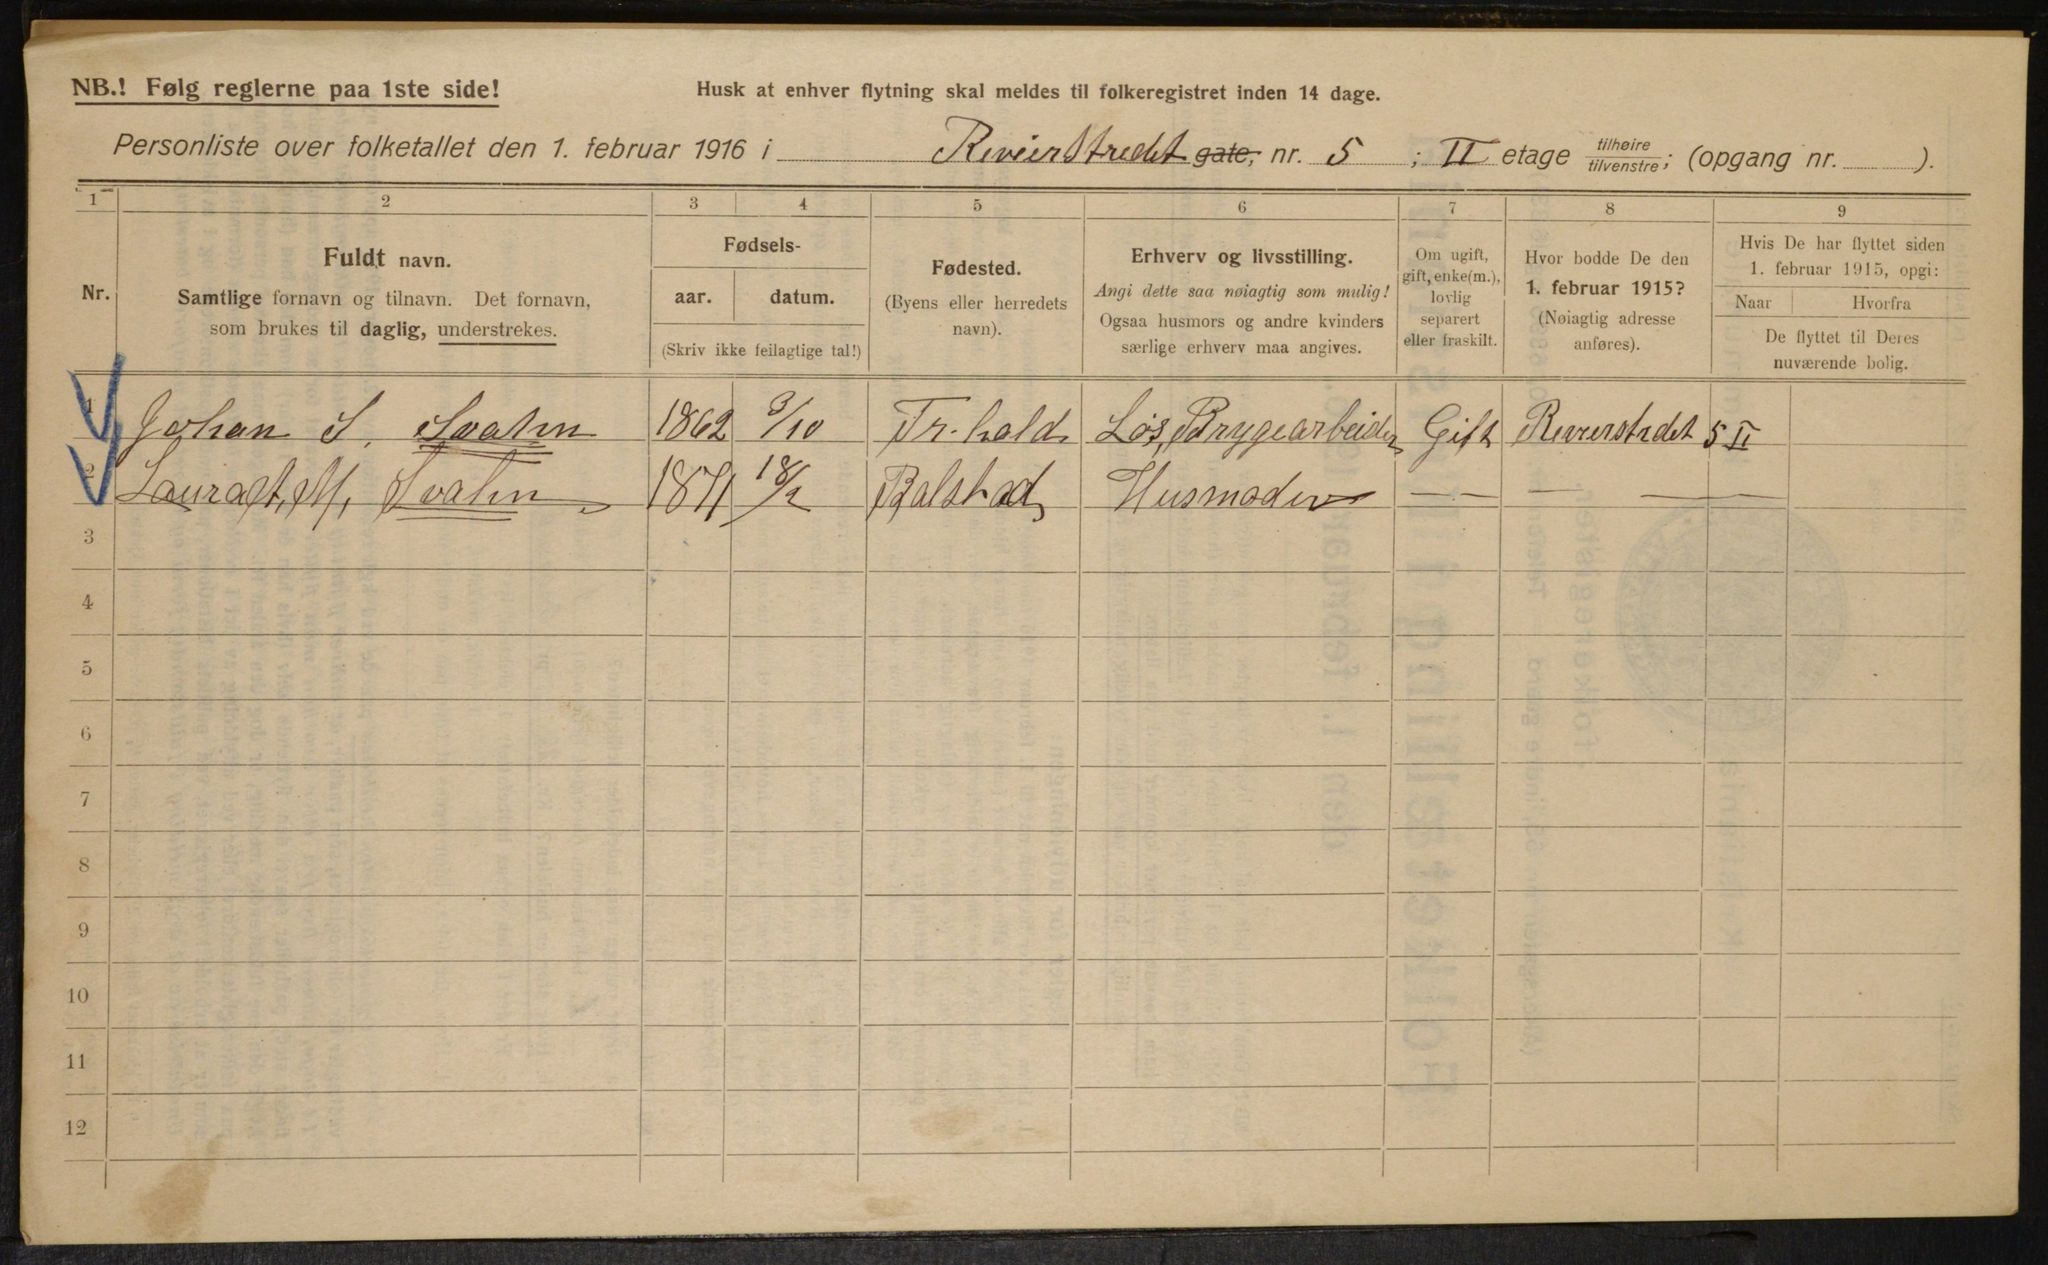 NB.! Følg reglerne paa 1ste side!
Husk at enhver flytning skal meldes til folkeregistret inden 14 dage.
Personliste over folketallet den 1. februar 1916 i Revierstredet gate, nr. 5 ; II etage tilhøire tilvenstre; (opgang nr. ).
1 2 3 4 5 6 7 8 9
Nr.
Fuldt navn.
Samtlige fornavn og tilnavn. Det fornavn,
som brukes til daglig, understrekes.
Fødsels-
aar. datum.
(Skriv ikke feilagtige tal!)
Fødested.
(Byens eller herredets
navn).
Erhverv og livsstilling.
Angi dette saa nøiagtig som mulig!
Ogsaa husmors og andre kvinders
særlige erhverv maa angives.
Om ugift,
gift, enke(m.),
lovlig
separert
eller fraskilt.
Hvor bodde De den
1. februar 1915?
(Nøiagtig adresse
anføres).
Hvis De har flyttet siden
1. februar 1915, opgi:
Naar Hvorfra
De flyttet til Deres
nuværende bolig.
1 Johan S. Svahn 1862 3/10 Fr.hald Løs, Brygearbeider Gift Revierstrdet 5 II
2 Laura M. Svahn 1871 18/2 Balstad Husmoder — — — —
3
4
5
6
7
8
9
10
11
12